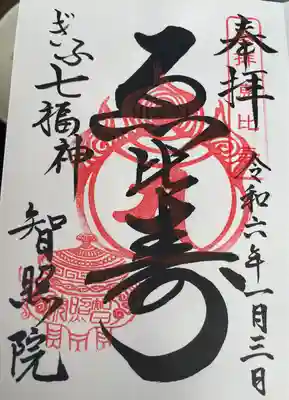 奉拝
令和六年一月三日
恵比寿
ぎふ七福神
智照院